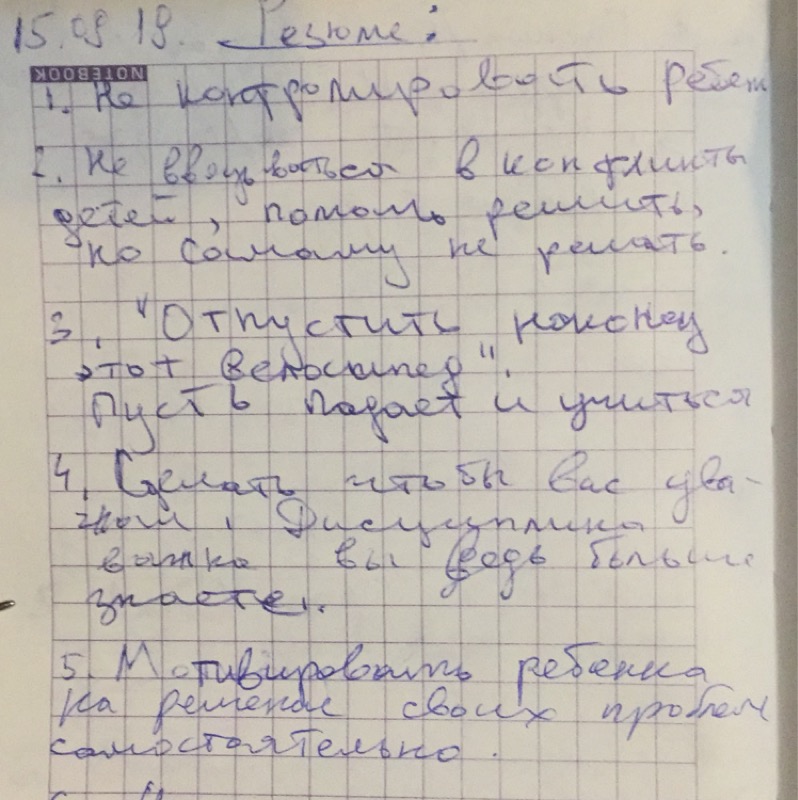 15.09.19. Резюме:
NOTEBOOK
1. Не контролировать ребен
2. Не ввязываться в конфликты
детей, помочь решить,
но самому не решать.
3. "Отпустить наконец
этот велосипед".
Пусть падает и учиться
4. Сделать чтобы вас ува-
жали, Дисциплина
важна вы ведь больше
знаете.
5. Мотивировать ребенка
на решение своих проблем
самостоятельно.